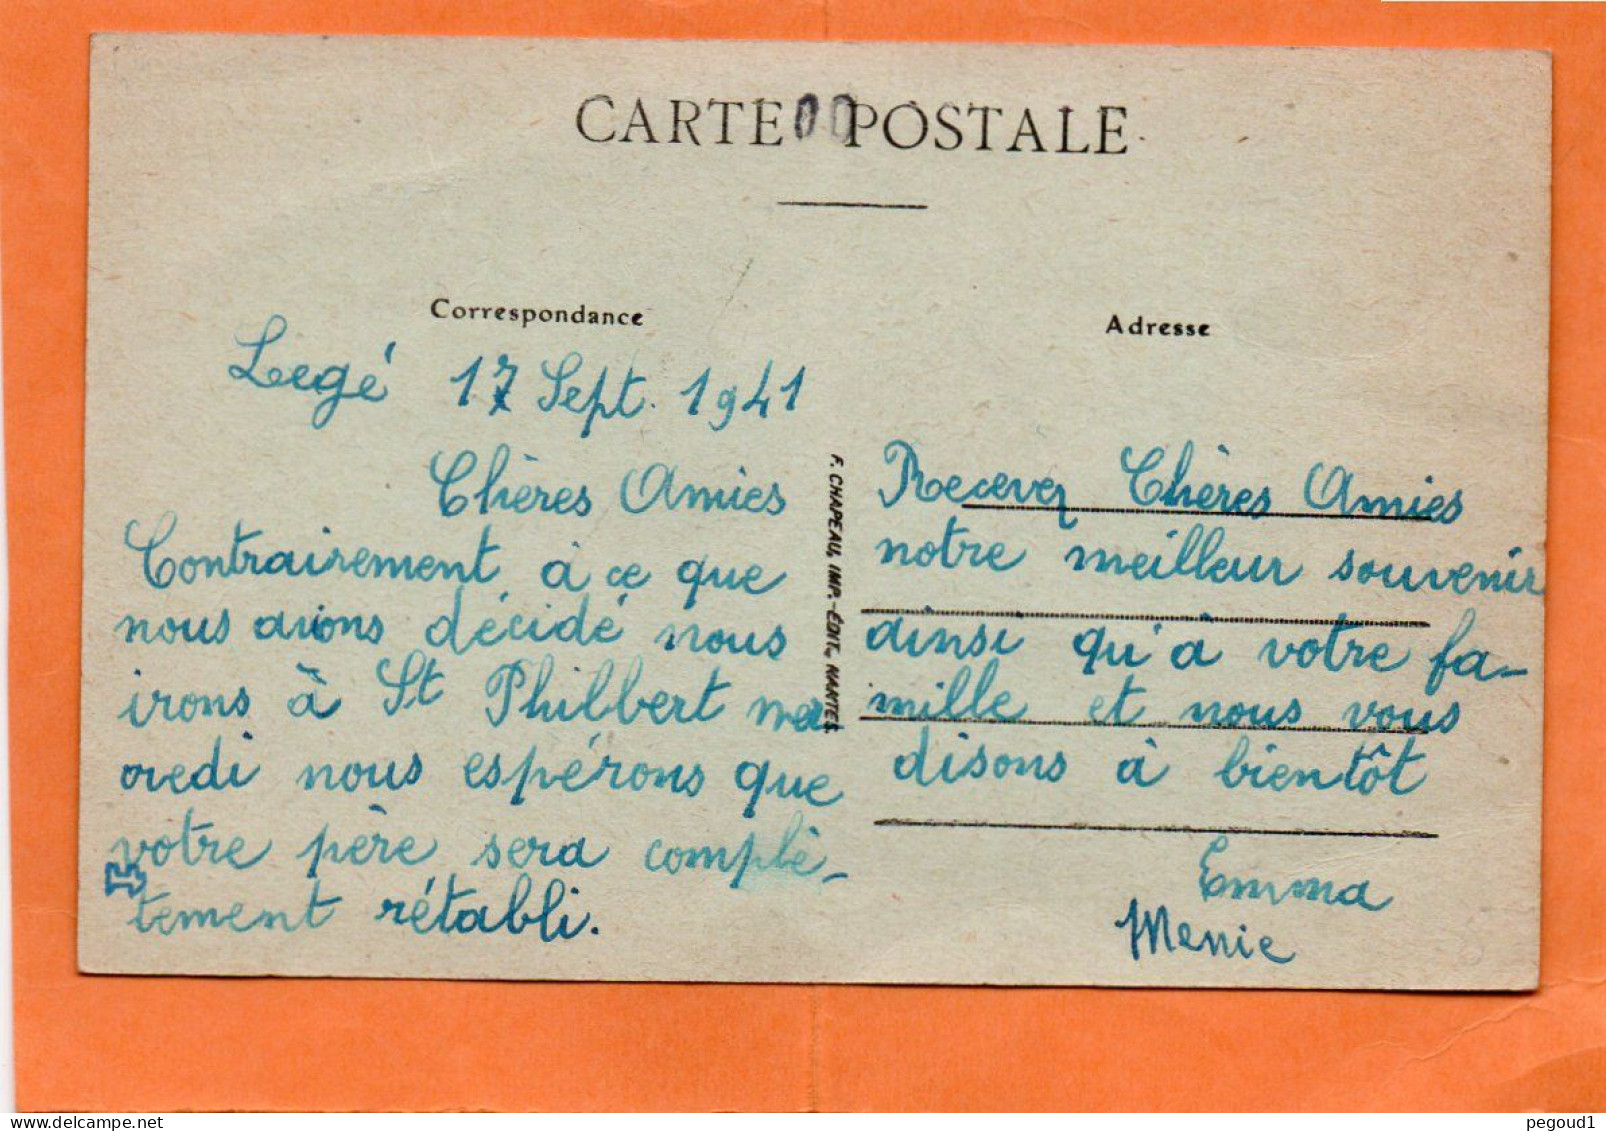 CARTE POSTALE
Correspondance
Legé 17 Sept. 1941
Chères Amies
Contrairement à ce que
nous avions décidé nous
irons à St Philbert mer
credi nous espérons que
votre père sera complè-
tement rétabli.
F. CHAPEAU, IMP.-ÉDIT., NANTES.
Adresse
Recevez Chères Amies
notre meilleur souvenir
ainsi qu'à votre fa-
mille et nous vous
disons à bientôt
Emma
Menie
pegoud1